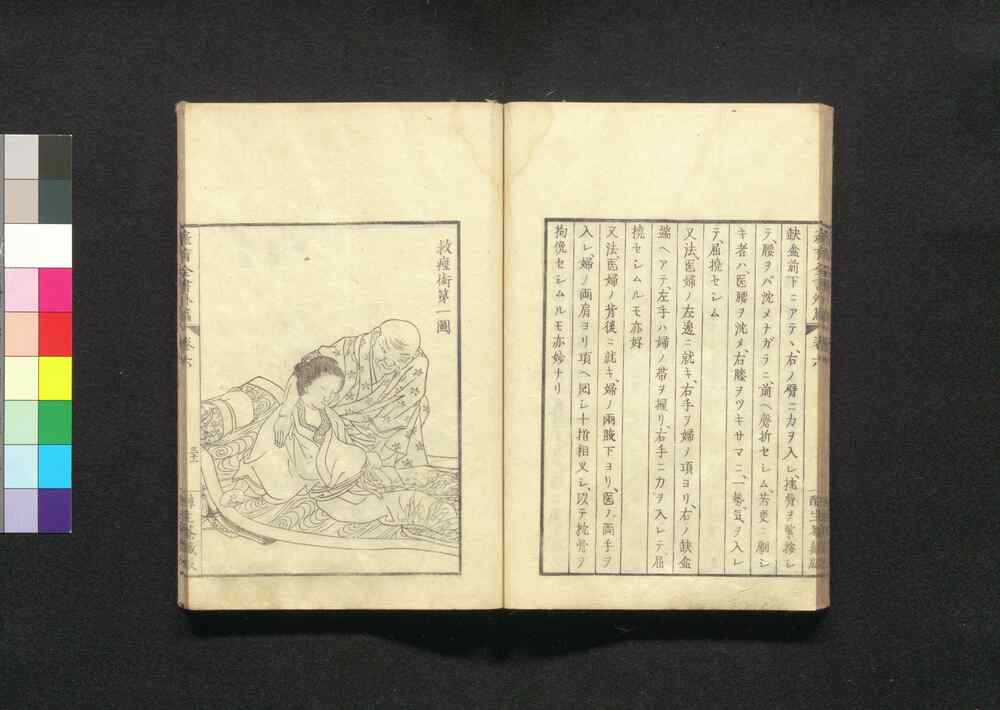 缺盆前下ニアテヽ、右ノ臂ニ力ヲ入レ、擁骨ヲ緊按シ
テ、腰ヲバ沈メナガラニ、前ヘ磬折セシム、若更ニ劇シ
キ者ハ、医腰ヲ沈メ、右膝ヲツキサマニ、一勢、気ヲ入レ
テ、屈撓セシム
又法、医婦ノ左邊ニ就キ、右手ヲ婦ノ項ヨリ、右ノ缺盆
端ヘアテ、左手ハ婦ノ帯ヲ握リ、右手ニ力ヲ入レテ、屈
撓セシムルモ亦好
又法、医婦ノ背後ニ就キ、婦ノ兩腋下ヨリ、医ノ両手ヲ
入レ、婦ノ両肩ヨリ項ヘ囘シ十指相叉シ、以テ枕骨ヲ
拘俛セシムルモ亦妙ナリ
救痙術第一圖
卷六